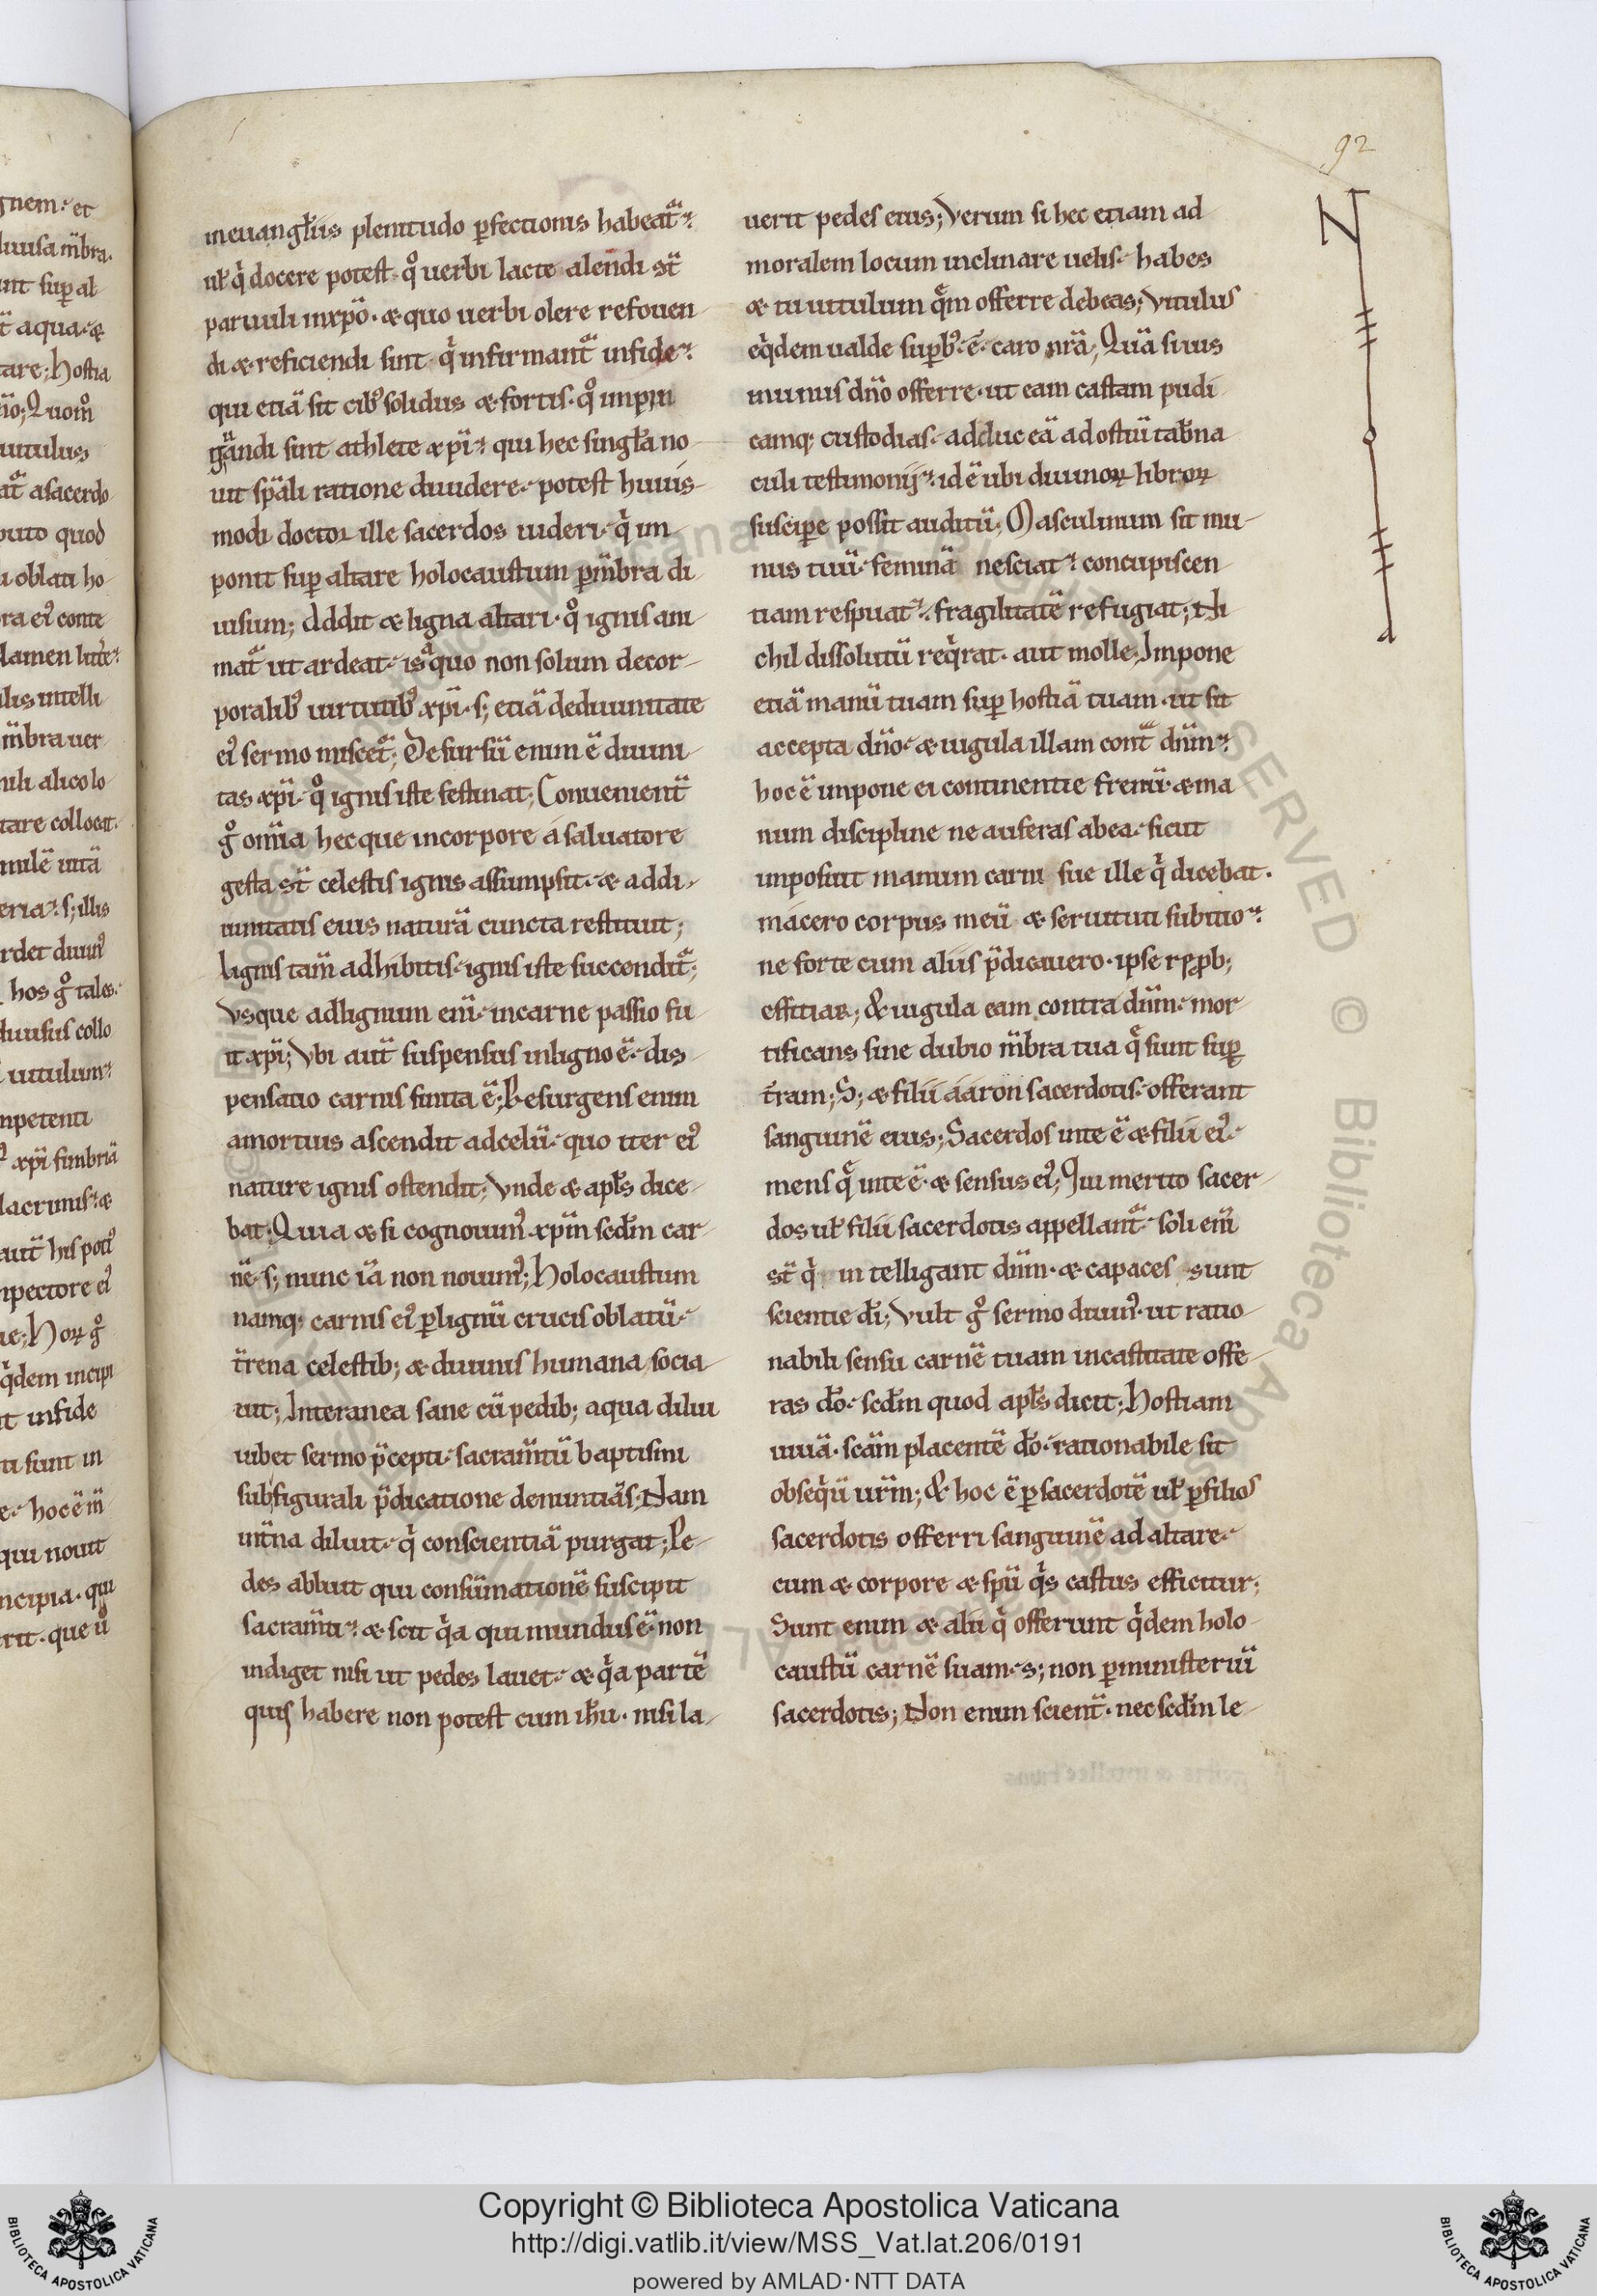 92
in euangłiis plenitudo ꝑfectionis habeat᷑.
uł q̇ docere potest. qͦ uerbi lacte alendi st̄
paruuli in xp̄o. & quo uerbi olere refouen
di & reficiendi sint. q̇ infirmant᷑ in fide.
qui etiā sit cibꝰ solidus & fortis. qͦ inpin
guandi sint athlete xp̄i. qui hec singl̄a no
uit sp̄ali ratione diuidere. potest huius
modi doctor ille sacerdos uideri. q̇ im
ponit sup̱ altare holocaustum ꝑ m̄bra di
uisum; Addit & ligna altari. qͦ ignis ani
mat᷑ ut ardeat. is a quo non solum de cor
poralibꝰ uirtutibꝰ xp̄i. s; etiā de diuinitate
eiꝰ sermo miscet᷑; Desursū enim ē diuini
tas xp̄i. qͦ ignis iste festinat; Conuenient̄
gͦ omīa hec que in corpore a saluatore
gesta st̄ celestis ignis assumpsit. & ad di
uinitatis eius naturā cuncta restituit;
Lignis tam̄ adhibitis. ignis iste succendit᷑;
Vsque ad lignum enī. in carne passio fu
it xp̄i; Vbi aut̄ suspensus in ligno ē. dis
pensatio carnis finita ē; Resurgens enim
a mortuis ascendit ad celū. quo iter eiꝰ
nature ignis ostendit; Vnde & apl̄s dice
bat; Quia & si cognouimꝰ xp̄m scd̄m car
nē. s; nunc iā non nouimꝰ; Holocaustum
namq; carnis eiꝰ ꝑ lignū crucis oblatū.
t̄rena celestib; & diuinis humana socia
uit; Interanea sane cū pedib; aqua dilui
iubet sermo p̄cepti. sacram̄tū baptismi
sub figurali p̄dicatione denuntiās; Nam
int̄na diluit. q̇ conscientiā purgat; Pe
des abluit qui consūmationē suscipit
sacram̄ti. & scit q̇a qui mundus ē. non
indiget nisi ut pedes lauet. & q̇a partē
quis habere non potest cum ih̄u. nisi la
uerit pedes eius; Verum si hec etiam ad
moralem locum inclinare uelis. habes
& tu uitulum quē̄m offerre debeas; Vitulus
eq̇dem ualde supbꝰ. ē. caro nr̄a, Quā si uis
munus dn̄o offerre. ut eam castam pudi
camq; custodias. adduc eā ad ostiū tab̄na
culi testimonij. id ē ubi diuinoꝝ libroꝝ
suscipe possit auditū; Masculinum sit mu
nus tuū. feminā nesciat. concupiscen
tiam respuat. fragilitatē refugiat; Ni
chil dissolutū req̇rat. aut molle; Impone
etiā manū tuam sup̱ hostiā tuam. ut sit
accepta dn̄o. & iugula illam cont̄ dn̄m.
hoc ē impone ei continentie frenū. & ma
num discipline ne auferas ab ea. sicut
imposuit manum carni sue ille q̇ dicebat.
macero corpus meū & seruituti subitio.
ne forte cum aliis p̄dicauero. ipse repꝓb;
efficiar; & iugula eam contra dn̄m. mor
tificans sine dubio m̄bra tua q̄ sunt sup̱
t̄ram; S; & filii aaron sacerdotis. offerant
sanguinē eius; Sacerdos in te ē & filii eiꝰ.
mens q̄ in te ē. & sensus eiꝰ; Qui merito sacer
dos uł filii sacerdotis appellant᷑. soli enī
st̄ q̇ intelligant dn̄m. & capaces sunt
scientie dī; Vult gͦ sermo diuinꝰ. ut ratio
nabili sensu carnē tuam in castitate offe
ras dō. scd̄m quod apl̄s dicit; Hostiam
uiuā. scām placentē dō. rationabile sit
obseq̇ū ur̄m; & hoc ē ꝑ sacerdotē uł ꝑ filios
sacerdotis offerri sanguinē ad altare.
cum & corpore & sp̄u q̇s castus efficitur;
Sunt enim & alii q̇ offerunt q̇dem holo
caustū carnē suam. s; non ꝑ ministeriū
sacerdotis; Non enim scient̄. nec scd̄m le
Copyright © Biblioteca Apostolica Vaticana
http://digi.vatlib.it/view/MSS_Vat.lat.206/0191
powered by AMLAD·NTT DATA
BIBLIOTECA APOSTOLICA VATICANA
BIBLIOTECA APOSTOLICA VATICANA